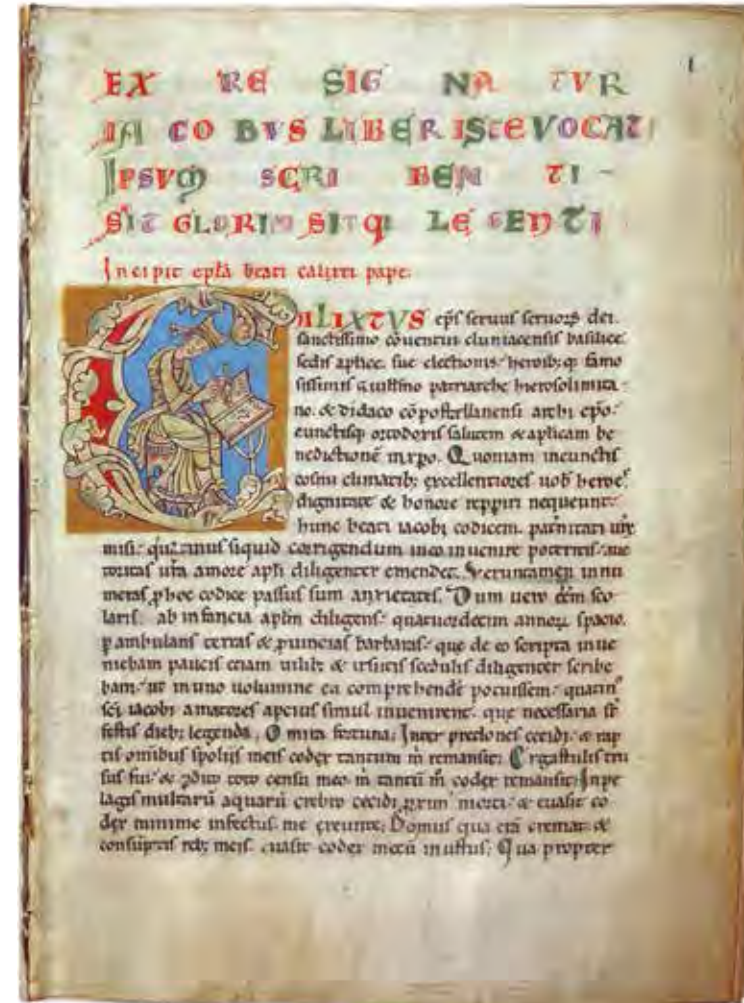 I
EX RE SIG NA TVR
IA CO BVS LIBER ISTE VOCAT
IPSVM SCRI BEN TI
SIT GLORIA SITQ LE GENTI
Incipit epła beati calixti pape.
CALIXTVS ep̄s seruus seruoꝝ dei.
sanctissimo cōuentui cluniacensis basilice
sedis aplice. sue electionis heroib; q famo
sissimis guillmo patriarche hierosolimita
no. & didaco cōpostellanensi archi ep̄o.
cunctisq; ortodoxis salutem & aplicam be
nedictionē in xp̄o. Quoniam in cunctis
cosmi climatib; excellentiores uob heroes
dignitate & honore reppiri nequeunt.
hunc beati iacobi codicem. pat̄nitati ur̄e
misi. qua̅tinus siquid corrigendum in eo inuenire poteritis. auc
toritas ur̄a amore apłi diligenter emendet. Veruntamen innu
meras ꝑ hoc codice passus sum anxietates. Dum uero eēm sco
laris. ab infancia aplm diligens. quatuordecim annoꝝ spacio.
ꝑambulans terras & ꝓuincias barbaras. que de eo scripta inue
niebam paucis etiam uilib; & irsutis scedulis diligenter scribe
bam. ut in uno uolumine ea comprehendē potuissem. quatin⁹
sc̄i iacobi amatores apcius simul inuenirent. que necessaria st̄
festis dieb; legenda. O mira fortuna. Inter predones cecidi. & rap
tis omibus spoliis meis codex tantum m̄ remansit. Ergastulis tru
sus fui. & ꝑdito toto censu meo. m tantū m̄ codex remansit. In pe
lagis multarū aquarū crebro cecidi. ꝓximus morti. & euasit co
dex minime infectus. me exeunte. Domus qua erā cremat̄. &
consūptis reb; meis. euasit codex mecū inustus. Qua propter